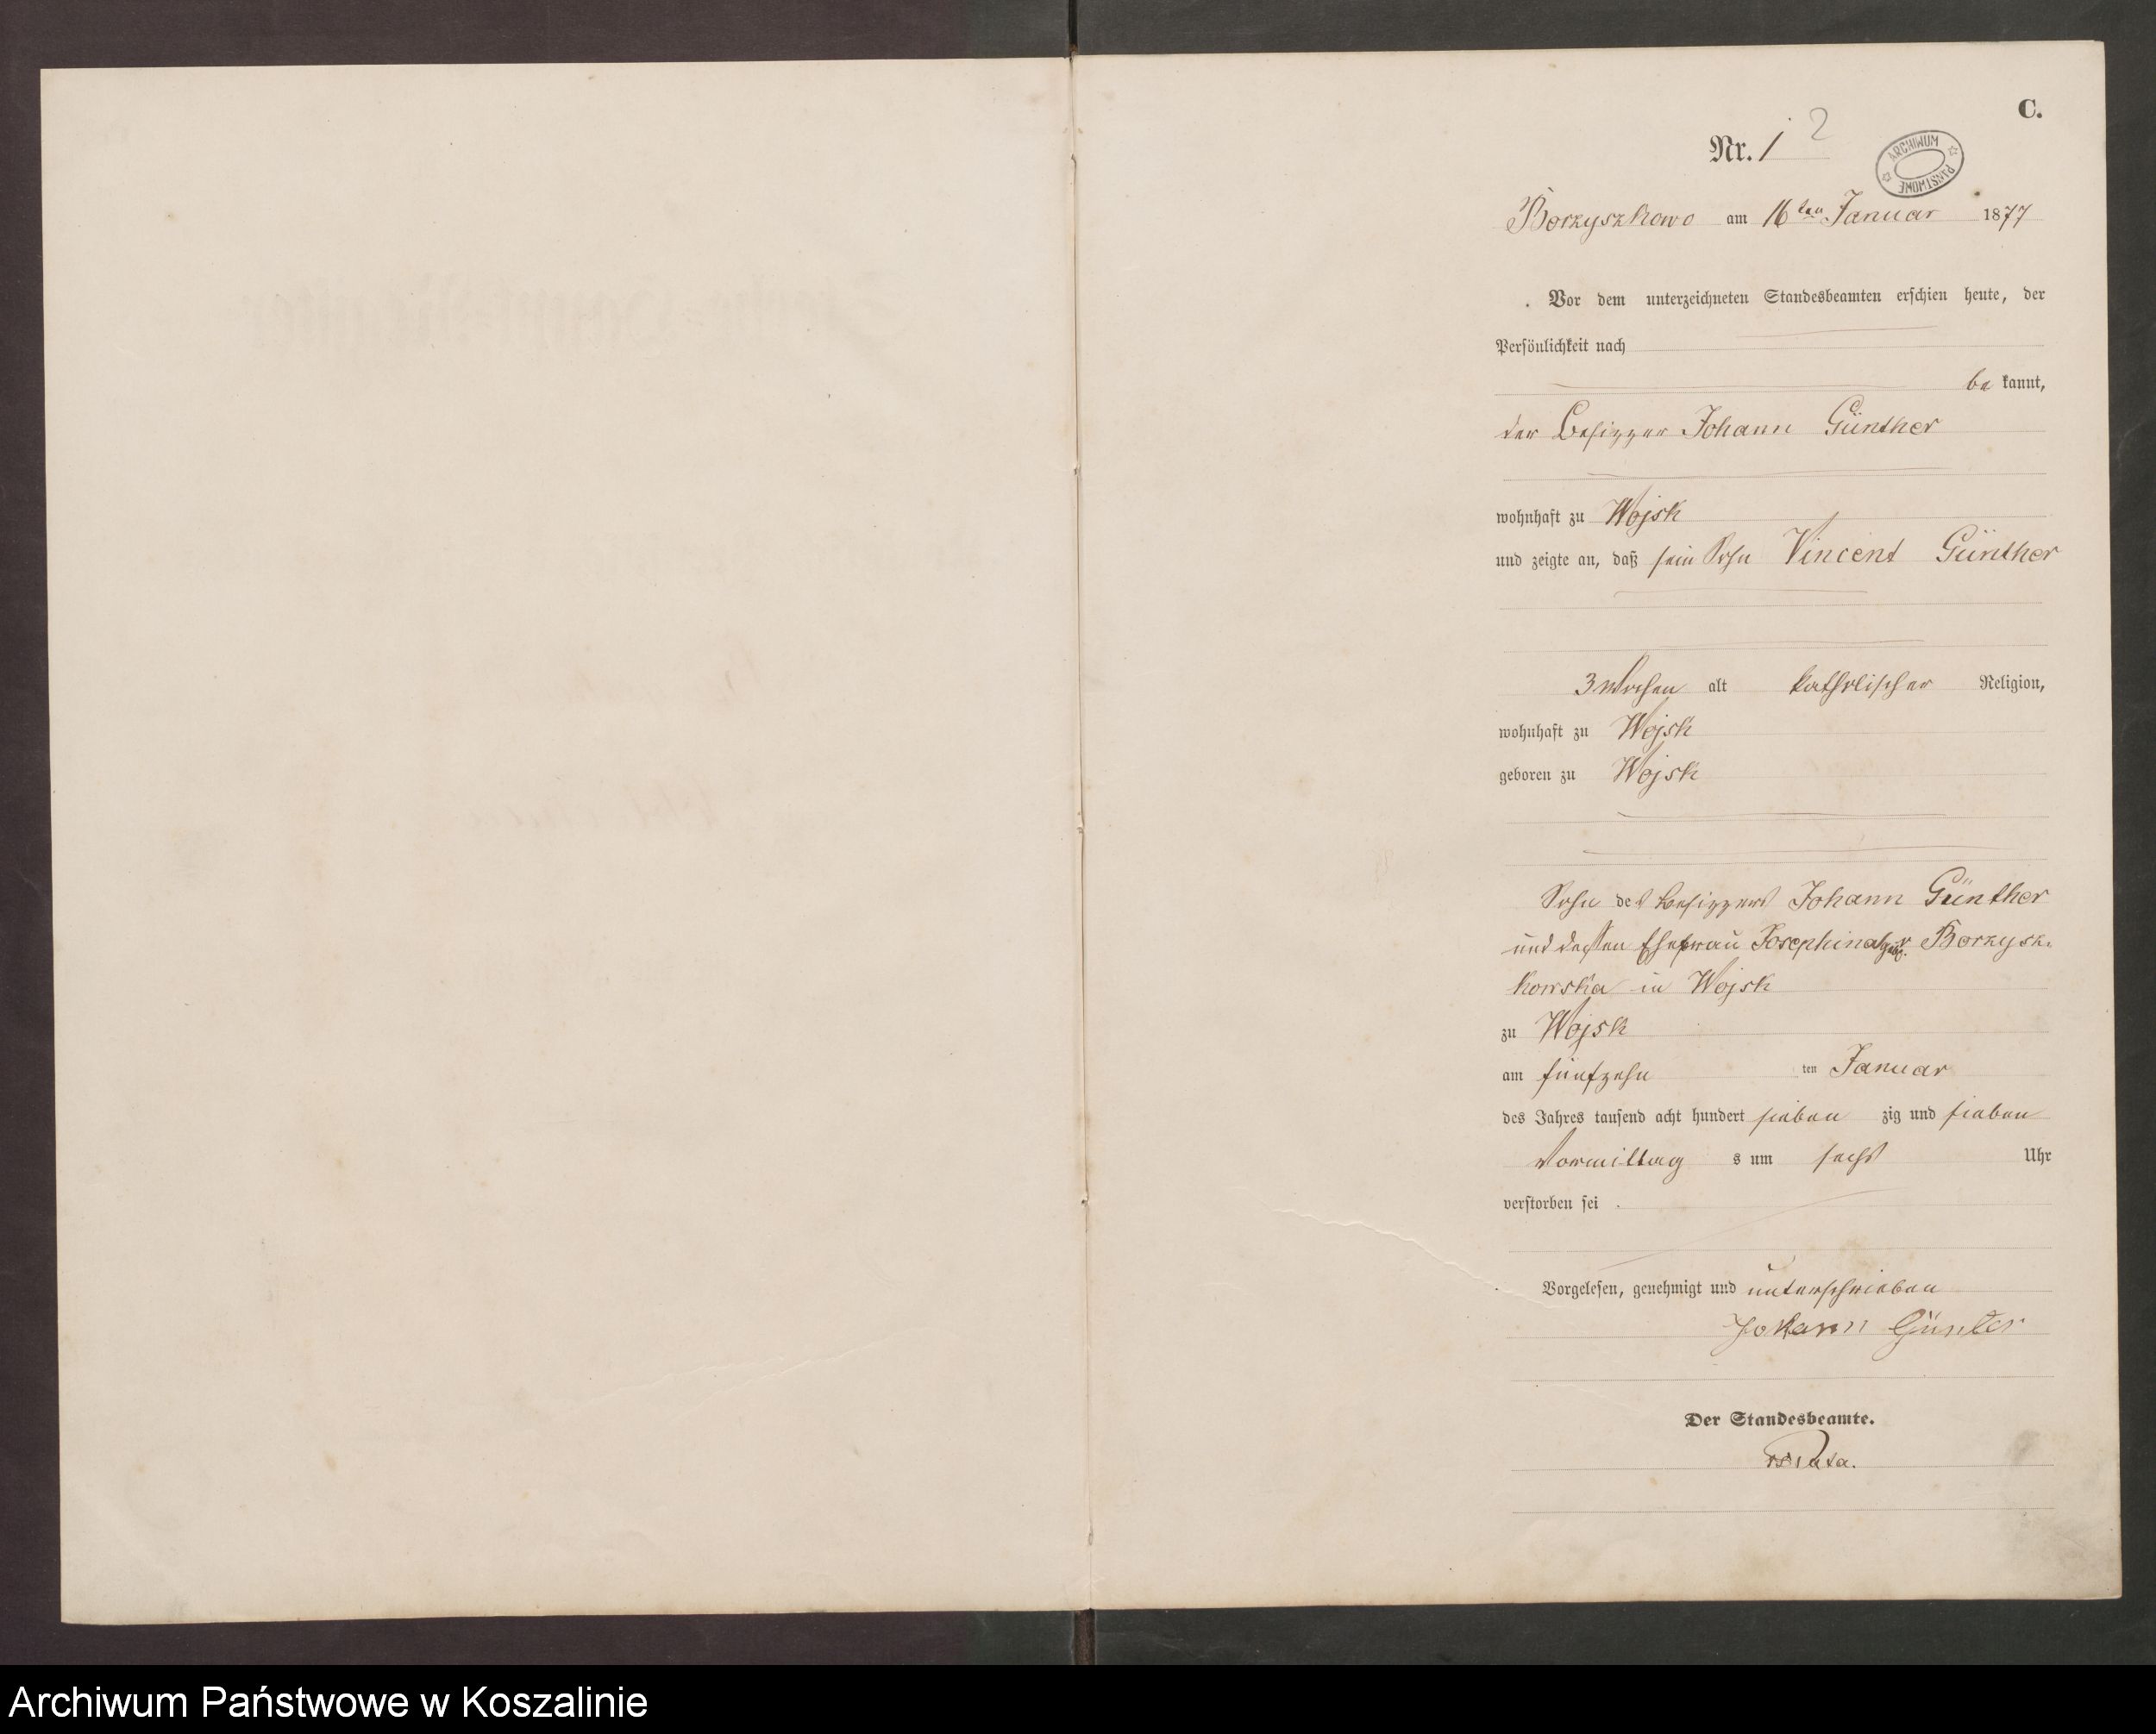 C.
Nr. 1 2
ARCHIWUM PAŃSTWOWE
Borzyszkowo am 16ten Januar 1877
Vor dem unterzeichneten Standesbeamten erschien heute, der
Persönlichkeit nach
be kannt,
der Besizzer Johann Günther
wohnhaft zu Wojsk
und zeigte an, daß sein Sohn Vincent Günther
3 Wochen alt katholischer Religion,
wohnhaft zu Wojsk
geboren zu Wojsk
Sohn des Besizzers Johann Günther
und dessen Ehefrau Josephina geb. Borzysz-
kowska in Wojsk
zu Wojsk
am fünfzehn ten Januar
des Jahres tausend acht hundert sieben zig und sieben
Vormittag s um sechs Uhr
verstorben sei
Vorgelesen, genehmigt und unterschrieben
Johann Günter
Der Standesbeamte.
Archiwum Państwowe w Koszalinie